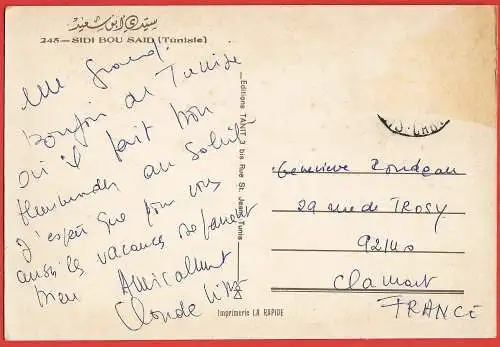 سيدي ابو سعيد
245—SIDI BOU SAID (Tunisie)
Bonjour de Tunisie
où il fait bon
au Soleil
J'espère que pour vous
aussi les vacances se passent
bien Amicalement
Claude
Editions TANIT 3 bis Rue St. Jean-Tunis
Geneviève Rondeau
29 rue de TROSY
92140
Clamart
FRANCE
Imprimerie LA RAPIDE